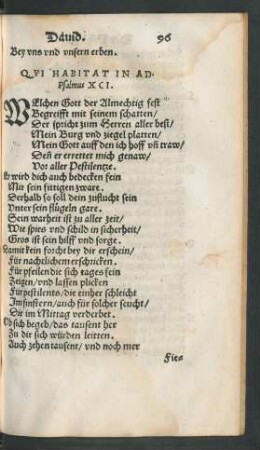 Dauid. 96
Bey vns vnd vnsern erben.
QVI HABITAT IN AD-
Psalmus XCI.
WElchen Gott der Almechtig fest
Begreifft mit seinem schatten/
Der spricht zum Herren aller best/
Mein Burg vnd ziegel platten/
Mein Gott auff den ich hoff vñ traw/
Deñ er errettet mich genaw/
Vor aller Pestilentze.
Er wird dich auch bedecken fein
Mit sein fittigen zware.
Derhalb so soll dein zuflucht sein
Vnter sein flügeln gare.
Sein warheit ist zu aller zeit/
Wie spies vnd schild in sicherheit/
Gros ist sein hilff vnd sorge.
Damit kein forcht bey dir erschein/
Für nachtlichem erschricken/
Für pfeilen die sich tages fein
Zeigen/ vnd lassen plicken
Für pestilents/ die einher schleicht
Im finstern/ auch für solcher seucht/
Die im Mittag verderbet.
Ob sich begeb/ das tausent her
Zu dir sich würden leitten.
Auch zehen tausent/ vnd noch mer